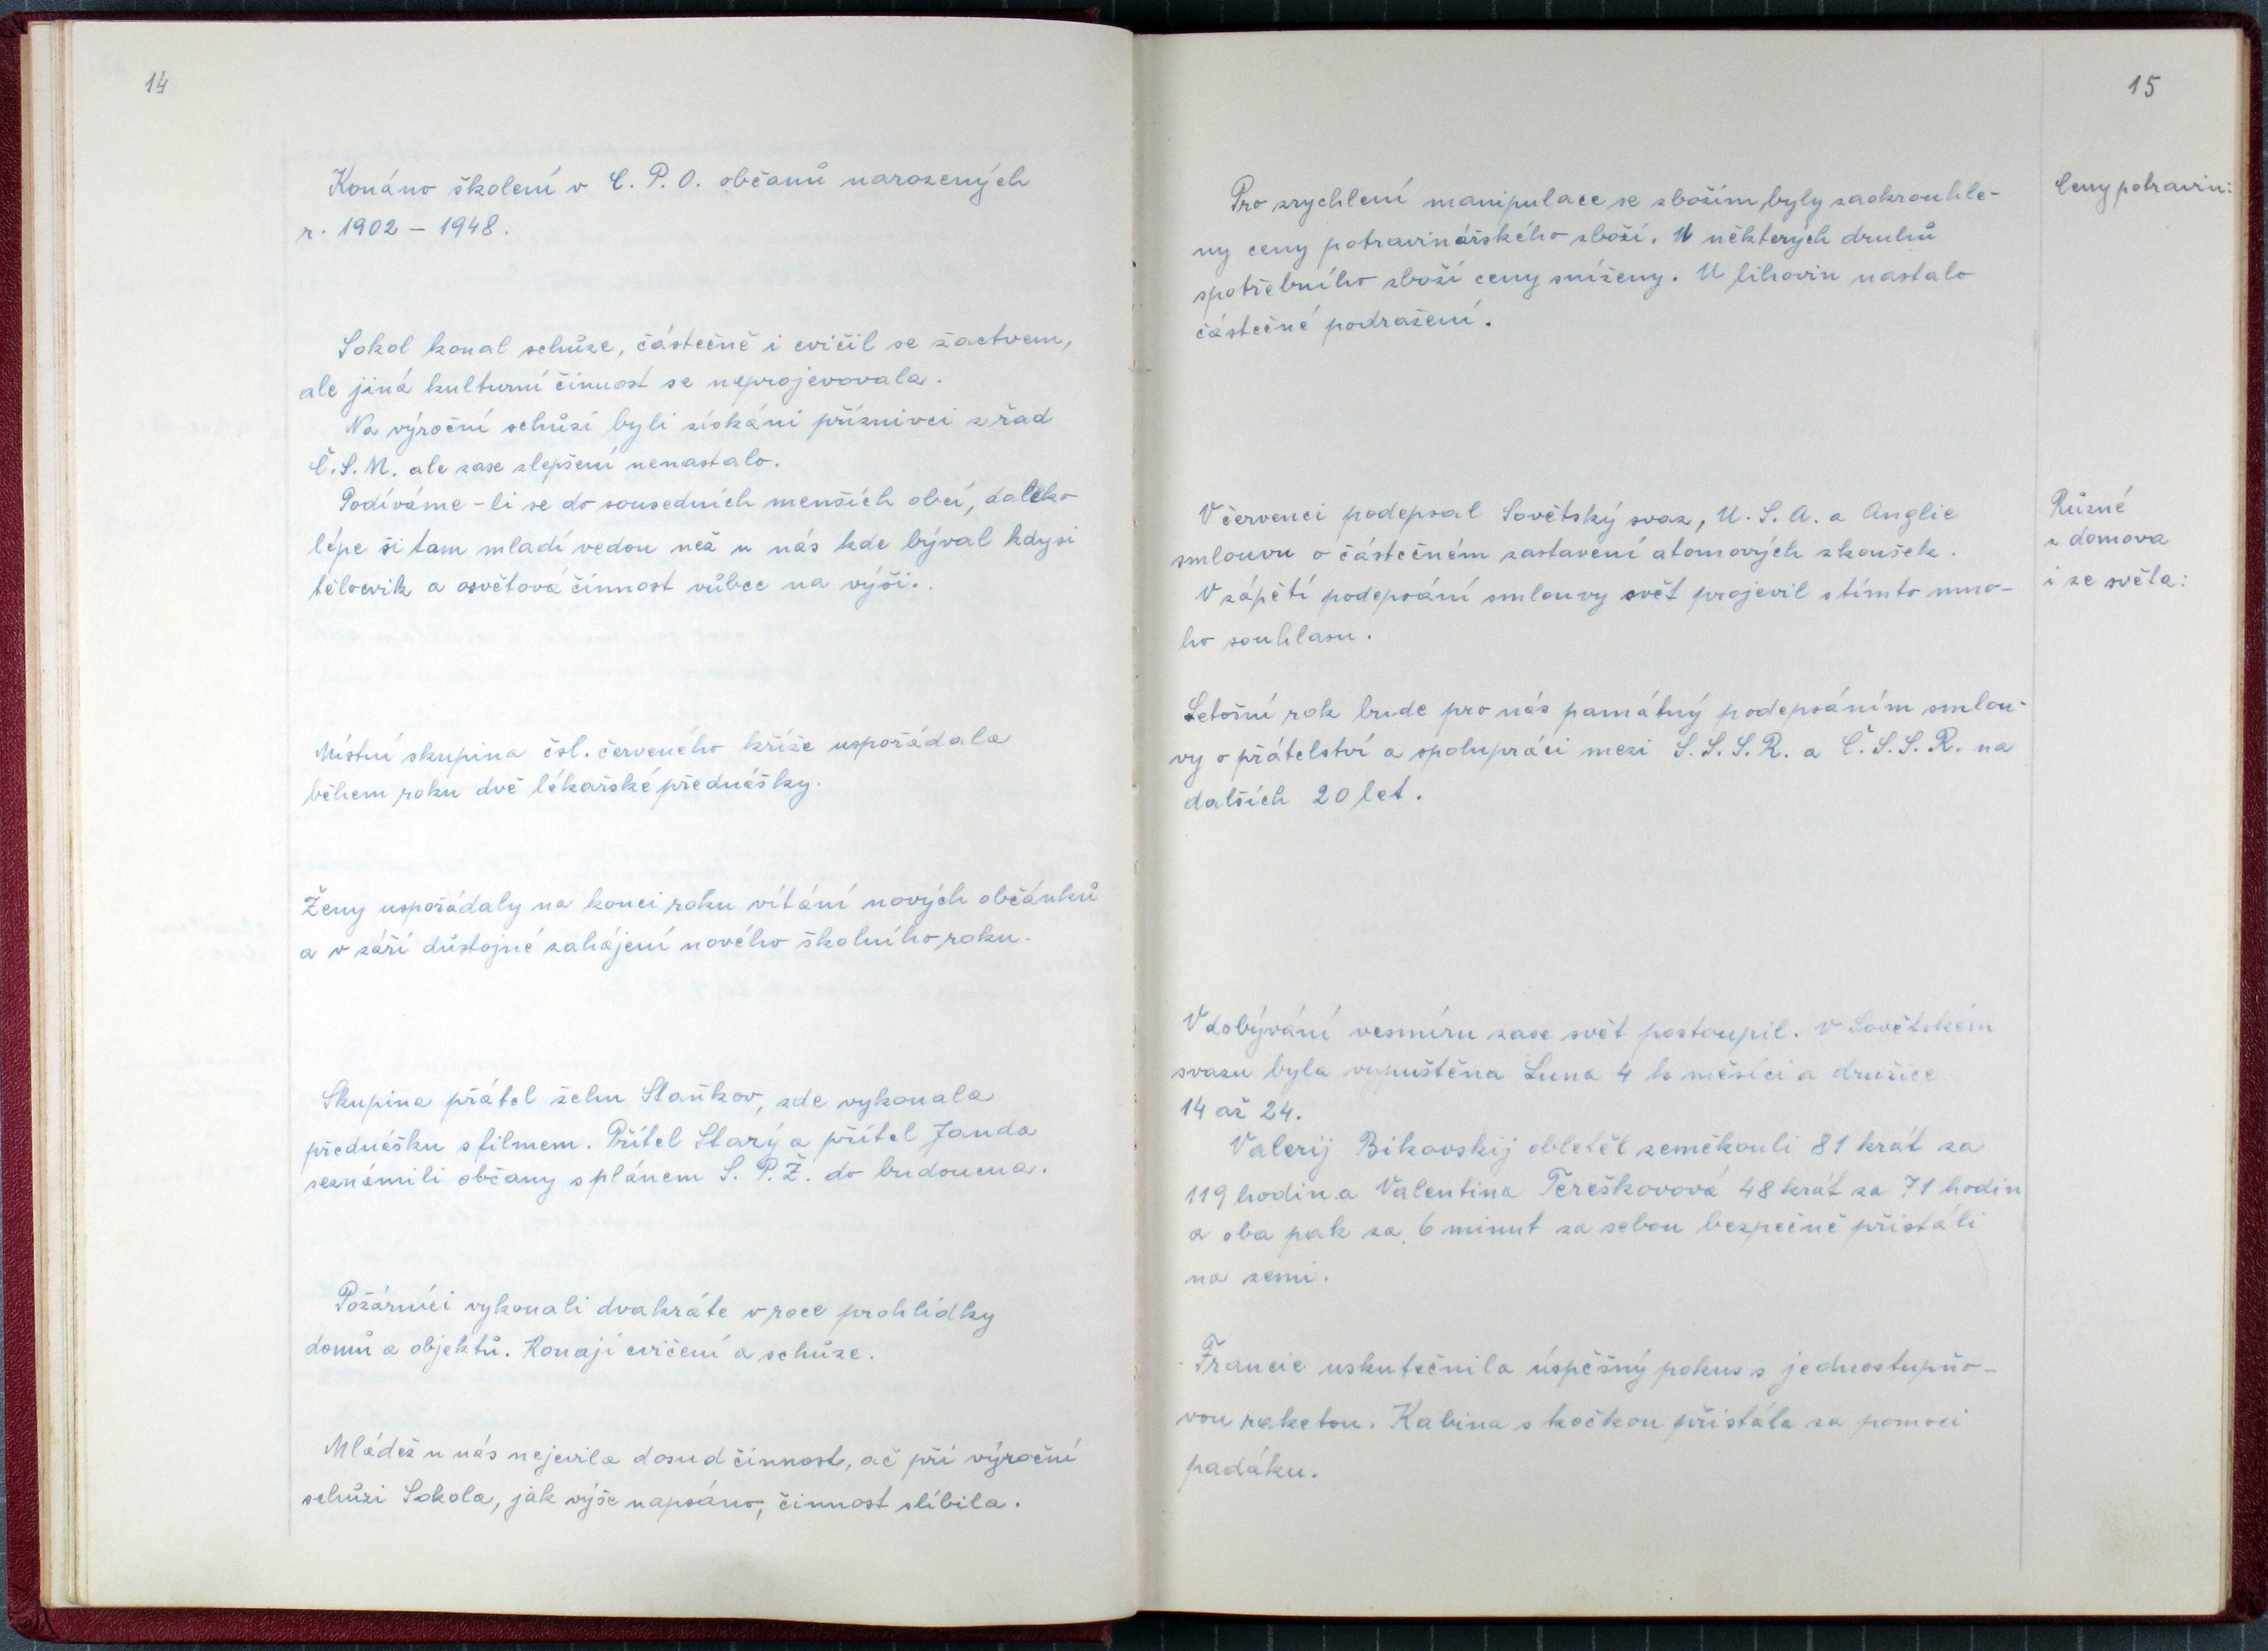 14
Konáno školení v C. P. O. občanů narozených
r. 1902 – 1948.
Sokol konal schůze, částečně i cvičil se žactvem,
ale jiná kulturní činnost se neprojevovala.
Na výroční schůzi byli získáni příznivci z řad
Č. S. M. ale zase zlepšení nenastalo.
Podíváme-li se do sousedních menších obcí, daleko
lépe si tam mladí vedou než u nás kde býval kdysi
tělocvik a osvětová činnost vůbec na výši.
Místní skupina čsl. červeného kříže uspořádala
během roku dvě lékařské přednášky.
Ženy uspořádaly na konci roku vítání nových občánků
a v září důstojné zahájení nového školního roku.
Skupina přátel žehu Staňkov, zde vykonala
přednášku s filmem. Přítel Starý a přítel Janda
seznámili občany s plánem S. P. Ž. do budoucna.
Požárníci vykonali dvakráte v roce prohlídky
domů a objektů. Konají cvičení a schůze.
Mládež u nás nejevila dosud činnost, ač při výroční
schůzi Sokola, jak výše napsáno, činnost slíbila.
15
Ceny potravin:
Pro zrychlení manipulace se zbožím, byly zaokrouhle-
ny ceny potravinářského zboží. U některých druhů
spotřebního zboží ceny sníženy. U lihovin nastalo
částečné podražení.
Různé
z domova
i ze světa:
V červenci podepsal Sovětský svaz, U. S. A. a Anglie
smlouvu o částečném zastavení atomových zkoušek.
V zápětí podepsání smlouvy svět projevil s tímto mno-
ho souhlasu.
Letošní rok bude pro nás památný podepsáním smlou-
vy o přátelství a spolupráci mezi S. S. S. R. a Č. S. S. R. na
dalších 20 let.
V dobývání vesmíru zase svět postoupil. V Sovětském
svazu byla vypuštěna Luna 4 k měsíci a družice
14 až 24.
Valerij Bikovskij obletěl zeměkouli 81 krát za
119 hodin a Valentina Těreškovová 48 krát za 71 hodin
a oba pak za 6 minut za sebou bezpečně přistáli
na zemi.
Francie uskutečnila úspěšný pokus s jednostupňo-
vou raketou. Kabina s kočkou přistála za pomoci
padáku.